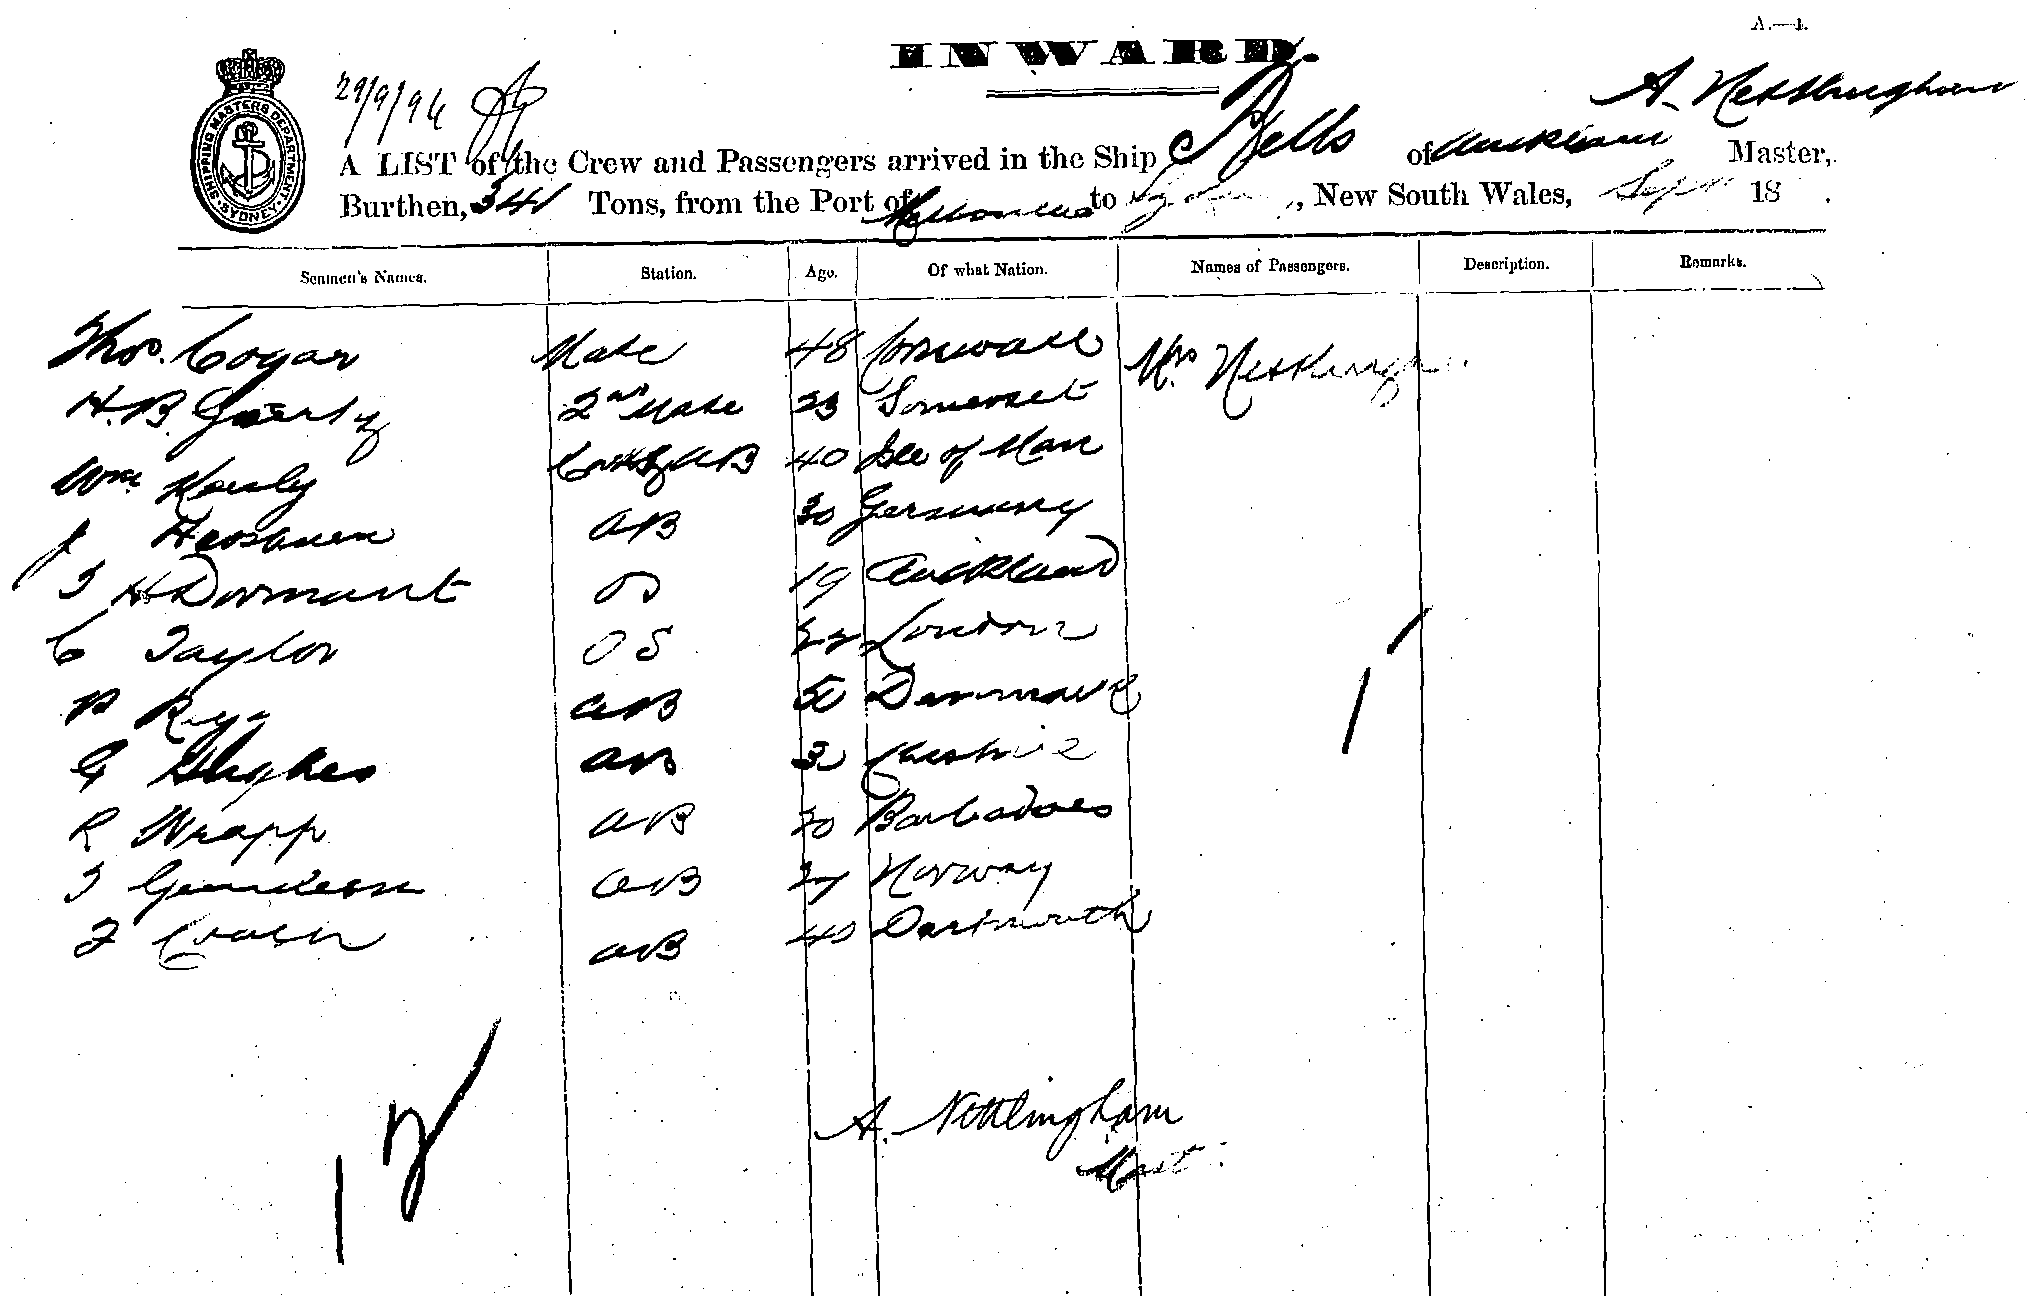 A.—1.
INWARD.
29/9/96
A. Nettlingham
SHIPPING MASTERS DEPARTMENT SYDNEY
A LIST of the Crew and Passengers arrived in the Ship of Auckland Master,
Burthen, 341 Tons, from the Port of to Sydney, New South Wales, Sept 18 .
Seamen's Names. Station. Age. Of what Nation. Names of Passengers. Description. Remarks.
Thos. Cogar Mate 48 Cornwall Mrs Nettlingham
H. B. 2nd Mate 23 Somerset
Wm. AB 40 Isle of Man
J AB 30 Germany
H Dormant OS 19 Auckland
C Taylor OS 22 London
AB 50 Denmark
G Hughes AB 30 Cheshire
R Wrapp AB Barbadoes
AB 27 Norway
AB 40 Dartmouth
1
12
A. Nettlingham
Mast